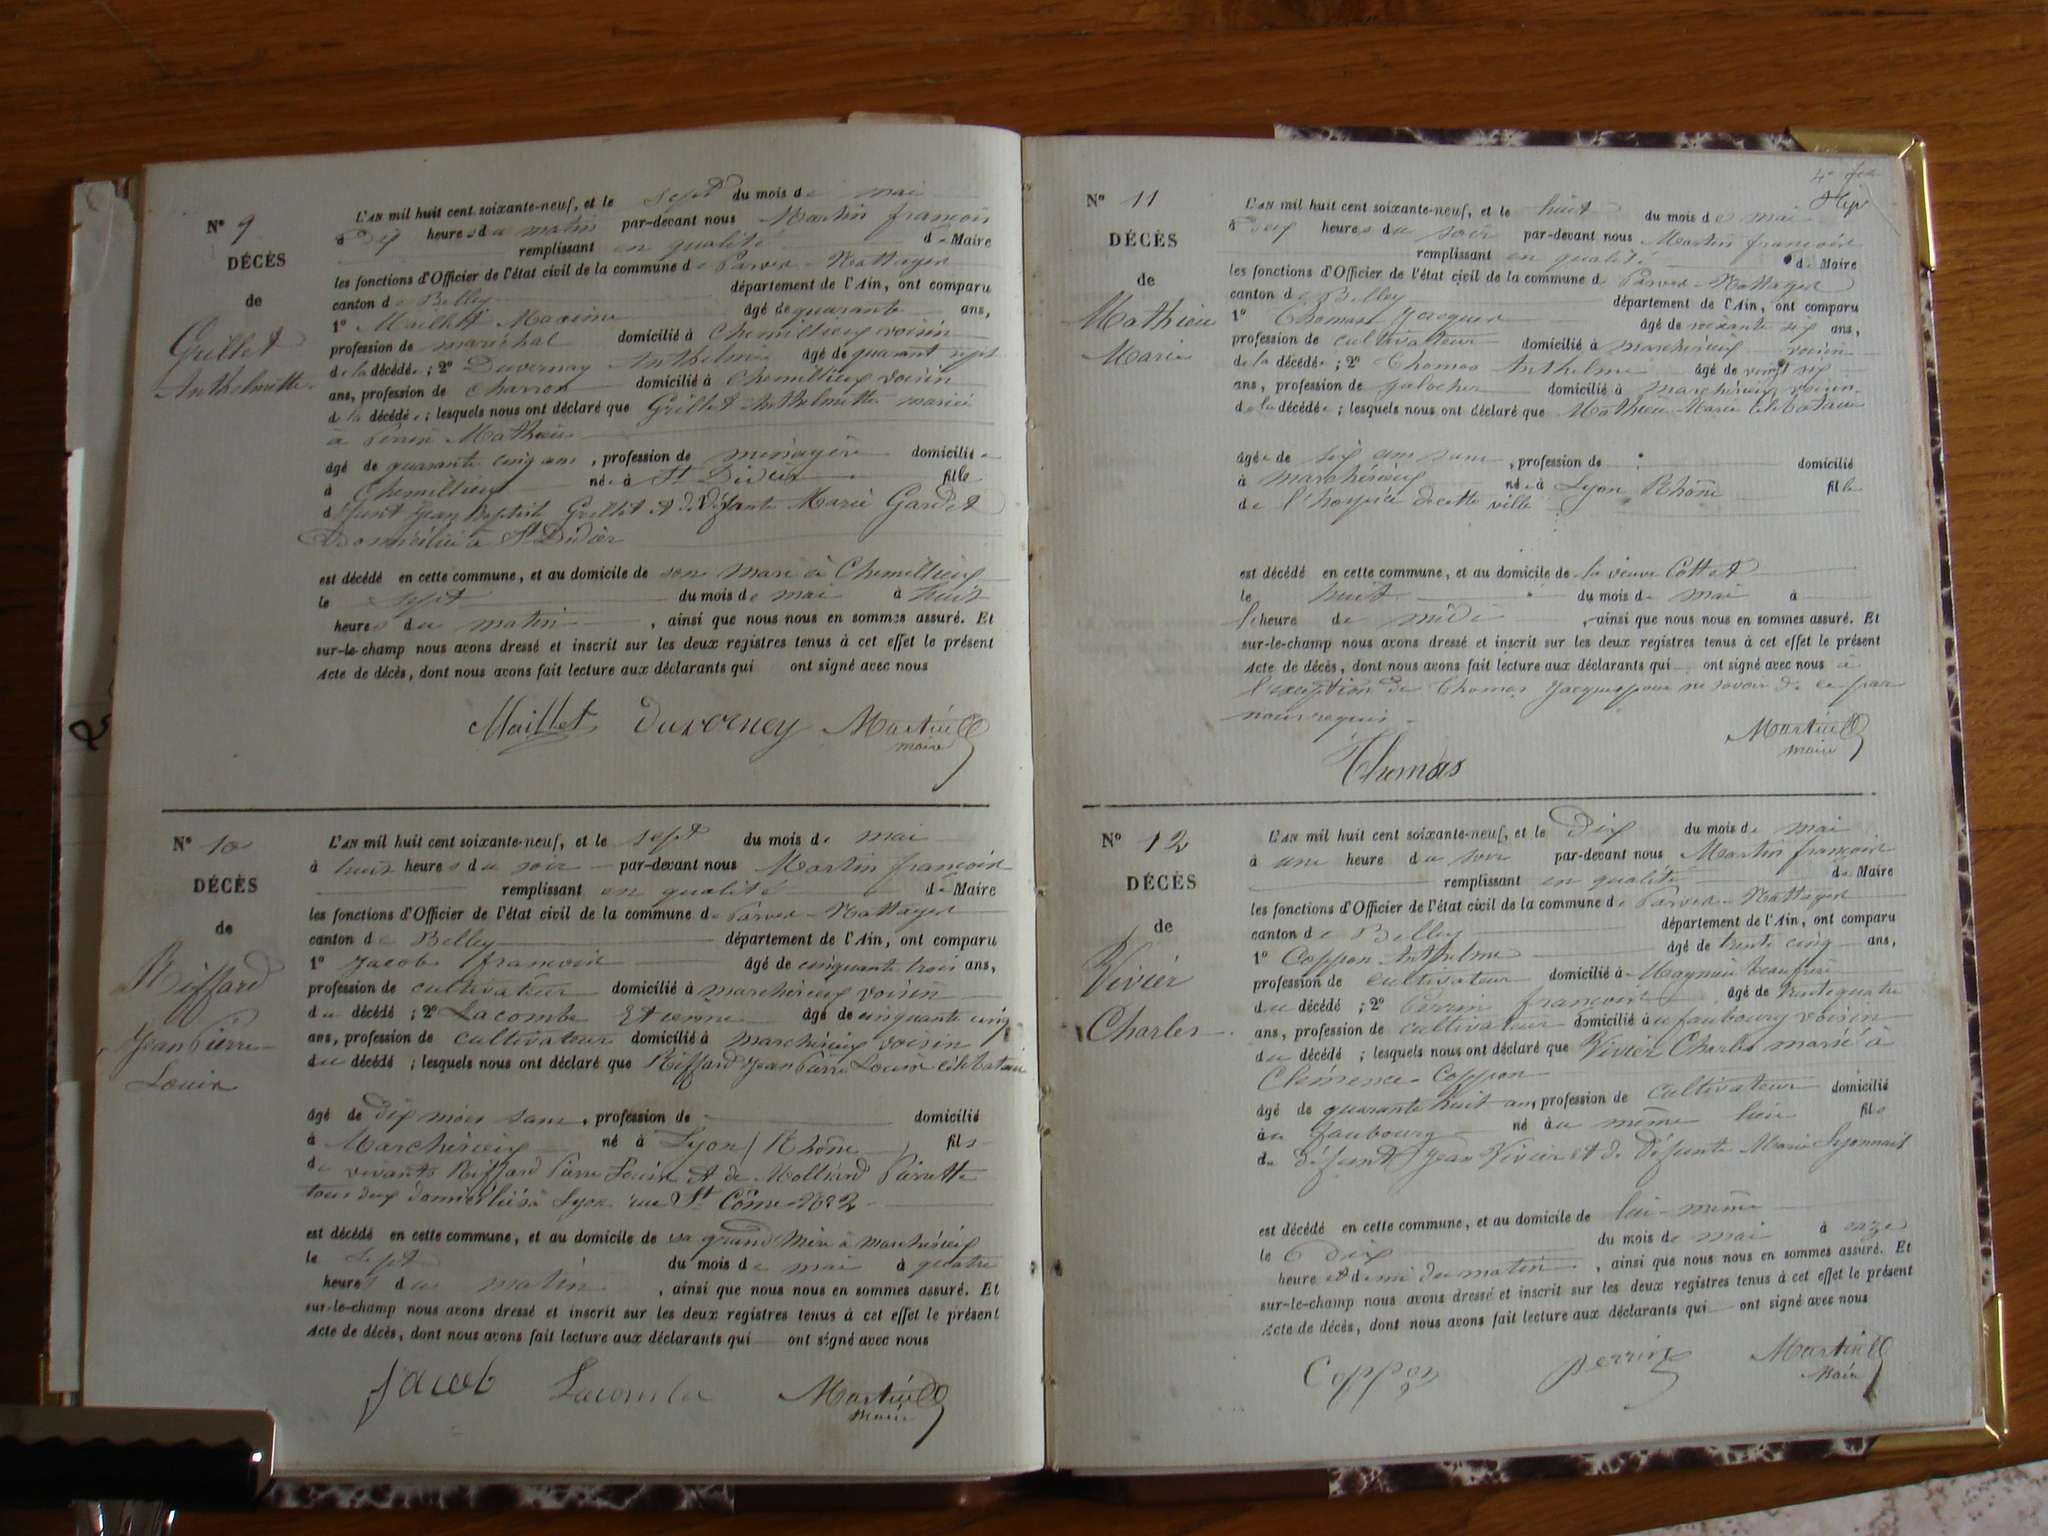 N° 9
DÉCÈS
de
Grillet
Anthelmette
L'AN mil huit cent soixante-neuf, et le sept du mois de mai
à dix heures du matin par-devant nous Martin françois
remplissant en qualité de Maire
les fonctions d'Officier de l'état civil de la commune de Parves-Nattages
canton de Belley département de l'Ain, ont comparu
1° Maillet Maxime âgé de quarante ans,
profession de maréchal domicilié à Chemillieux voisin
de la décédée ; 2° Duvernay Anthelme âgé de quarant sept
ans, profession de charron domicilié à Chemillieux voisin
de la décédée ; lesquels nous ont déclaré que Grillet Anthelmette mariée
à Mathieu
âgé de quarante cinq ans, profession de ménagère domiciliée
à Chemillieux née à St Didier fille
de funt Jean Baptiste Grillet et de défunte Marie Gardet
domiciliée à St Didier
est décédé en cette commune, et au domicile de son mari à Chemillieux
le sept du mois de mai à huit
heures du matin, ainsi que nous nous en sommes assuré. Et
sur-le-champ nous avons dressé et inscrit sur les deux registres tenus à cet effet le présent
Acte de décès, dont nous avons fait lecture aux déclarants qui ont signé avec nous
Maillet Duverney Martin
maire
N° 10
DÉCÈS
de
Riffard
Jean Pierre
Louis
L'AN mil huit cent soixante-neuf, et le sept du mois de mai
à trois heures du soir par-devant nous Martin françois
remplissant en qualité de Maire
les fonctions d'Officier de l'état civil de la commune de Parves-Nattages
canton de Belley département de l'Ain, ont comparu
1° Jacob françois âgé de cinquante trois ans,
profession de cultivateur domicilié à marchérieux voisin
du décédé ; 2° Lacombe Etienne âgé de cinquante cinq
ans, profession de cultivateur domicilié à marchérieux voisin
du décédé ; lesquels nous ont déclaré que Riffard Jean Pierre Louis célibataire
âgé de dix mois sans, profession de domicilié
à Marchérieux né à Lyon (Rhône) fils
de vivants Riffard Pierre Louis et de Molliard Pierrette
tous deux domiciliés à Lyon rue St Côme N° 2
est décédé en cette commune, et au domicile de sa grand Mère à marchérieux
le sept du mois de mai à quatre
heures du matin, ainsi que nous nous en sommes assuré. Et
sur-le-champ nous avons dressé et inscrit sur les deux registres tenus à cet effet le présent
Acte de décès, dont nous avons fait lecture aux déclarants qui ont signé avec nous
Jacob Lacombe Martin
maire
N° 11
DÉCÈS
de
Mathieu
Marie
L'AN mil huit cent soixante-neuf, et le huit du mois de mai
à deux heures du soir par-devant nous Martin françois
remplissant en qualité de Maire
les fonctions d'Officier de l'état civil de la commune de Parves-Nattages
canton de Belley département de l'Ain, ont comparu
1° Thomas Jacques âgé de soixante six ans,
profession de cultivateur domicilié à marchérieux voisin
de la décédée ; 2° Thomas Anthelme âgé de vingt six
ans, profession de galocher domicilié à marchérieux voisin
de la décédée ; lesquels nous ont déclaré que Mathieu Marie célibataire
âgée de six ans sans, profession de domicilié
à marchérieux née à Lyon Rhône fille
de l'hospice de cette ville
est décédé en cette commune, et au domicile de la veuve Cottet
le huit du mois de mai à
l'heure de midi, ainsi que nous nous en sommes assuré. Et
sur-le-champ nous avons dressé et inscrit sur les deux registres tenus à cet effet le présent
Acte de décès, dont nous avons fait lecture aux déclarants qui ont signé avec nous à
l'exception de Thomas Jacques pour ne savoir de ce par
nous requis.
Martin
maire
Thomas
N° 12
DÉCÈS
de
Vivier
Charles
L'AN mil huit cent soixante-neuf, et le dix du mois de mai
à une heure du soir par-devant nous Martin françois
remplissant en qualité de Maire
les fonctions d'Officier de l'état civil de la commune de Parves-Nattages
canton de Belley département de l'Ain, ont comparu
1° Coppon Anthelme âgé de trente cinq ans,
profession de cultivateur domicilié à
du décédé ; 2° Perrin françois âgé de trente quatre
ans, profession de cultivateur domicilié au faubourg voisin
du décédé ; lesquels nous ont déclaré que Vivier Charles marié à
Clémence Coppon
âgé de quarante huit ans, profession de cultivateur domicilié
au faubourg né au même lieu fils
de défunt Jean Vivier et de défunte Marie Lyonnait
est décédé en cette commune, et au domicile de lui-même
le dix du mois de mai à onze
heure et demi du matin, ainsi que nous nous en sommes assuré. Et
sur-le-champ nous avons dressé et inscrit sur les deux registres tenus à cet effet le présent
Acte de décès, dont nous avons fait lecture aux déclarants qui ont signé avec nous
Coppon perrin Martin
Maire